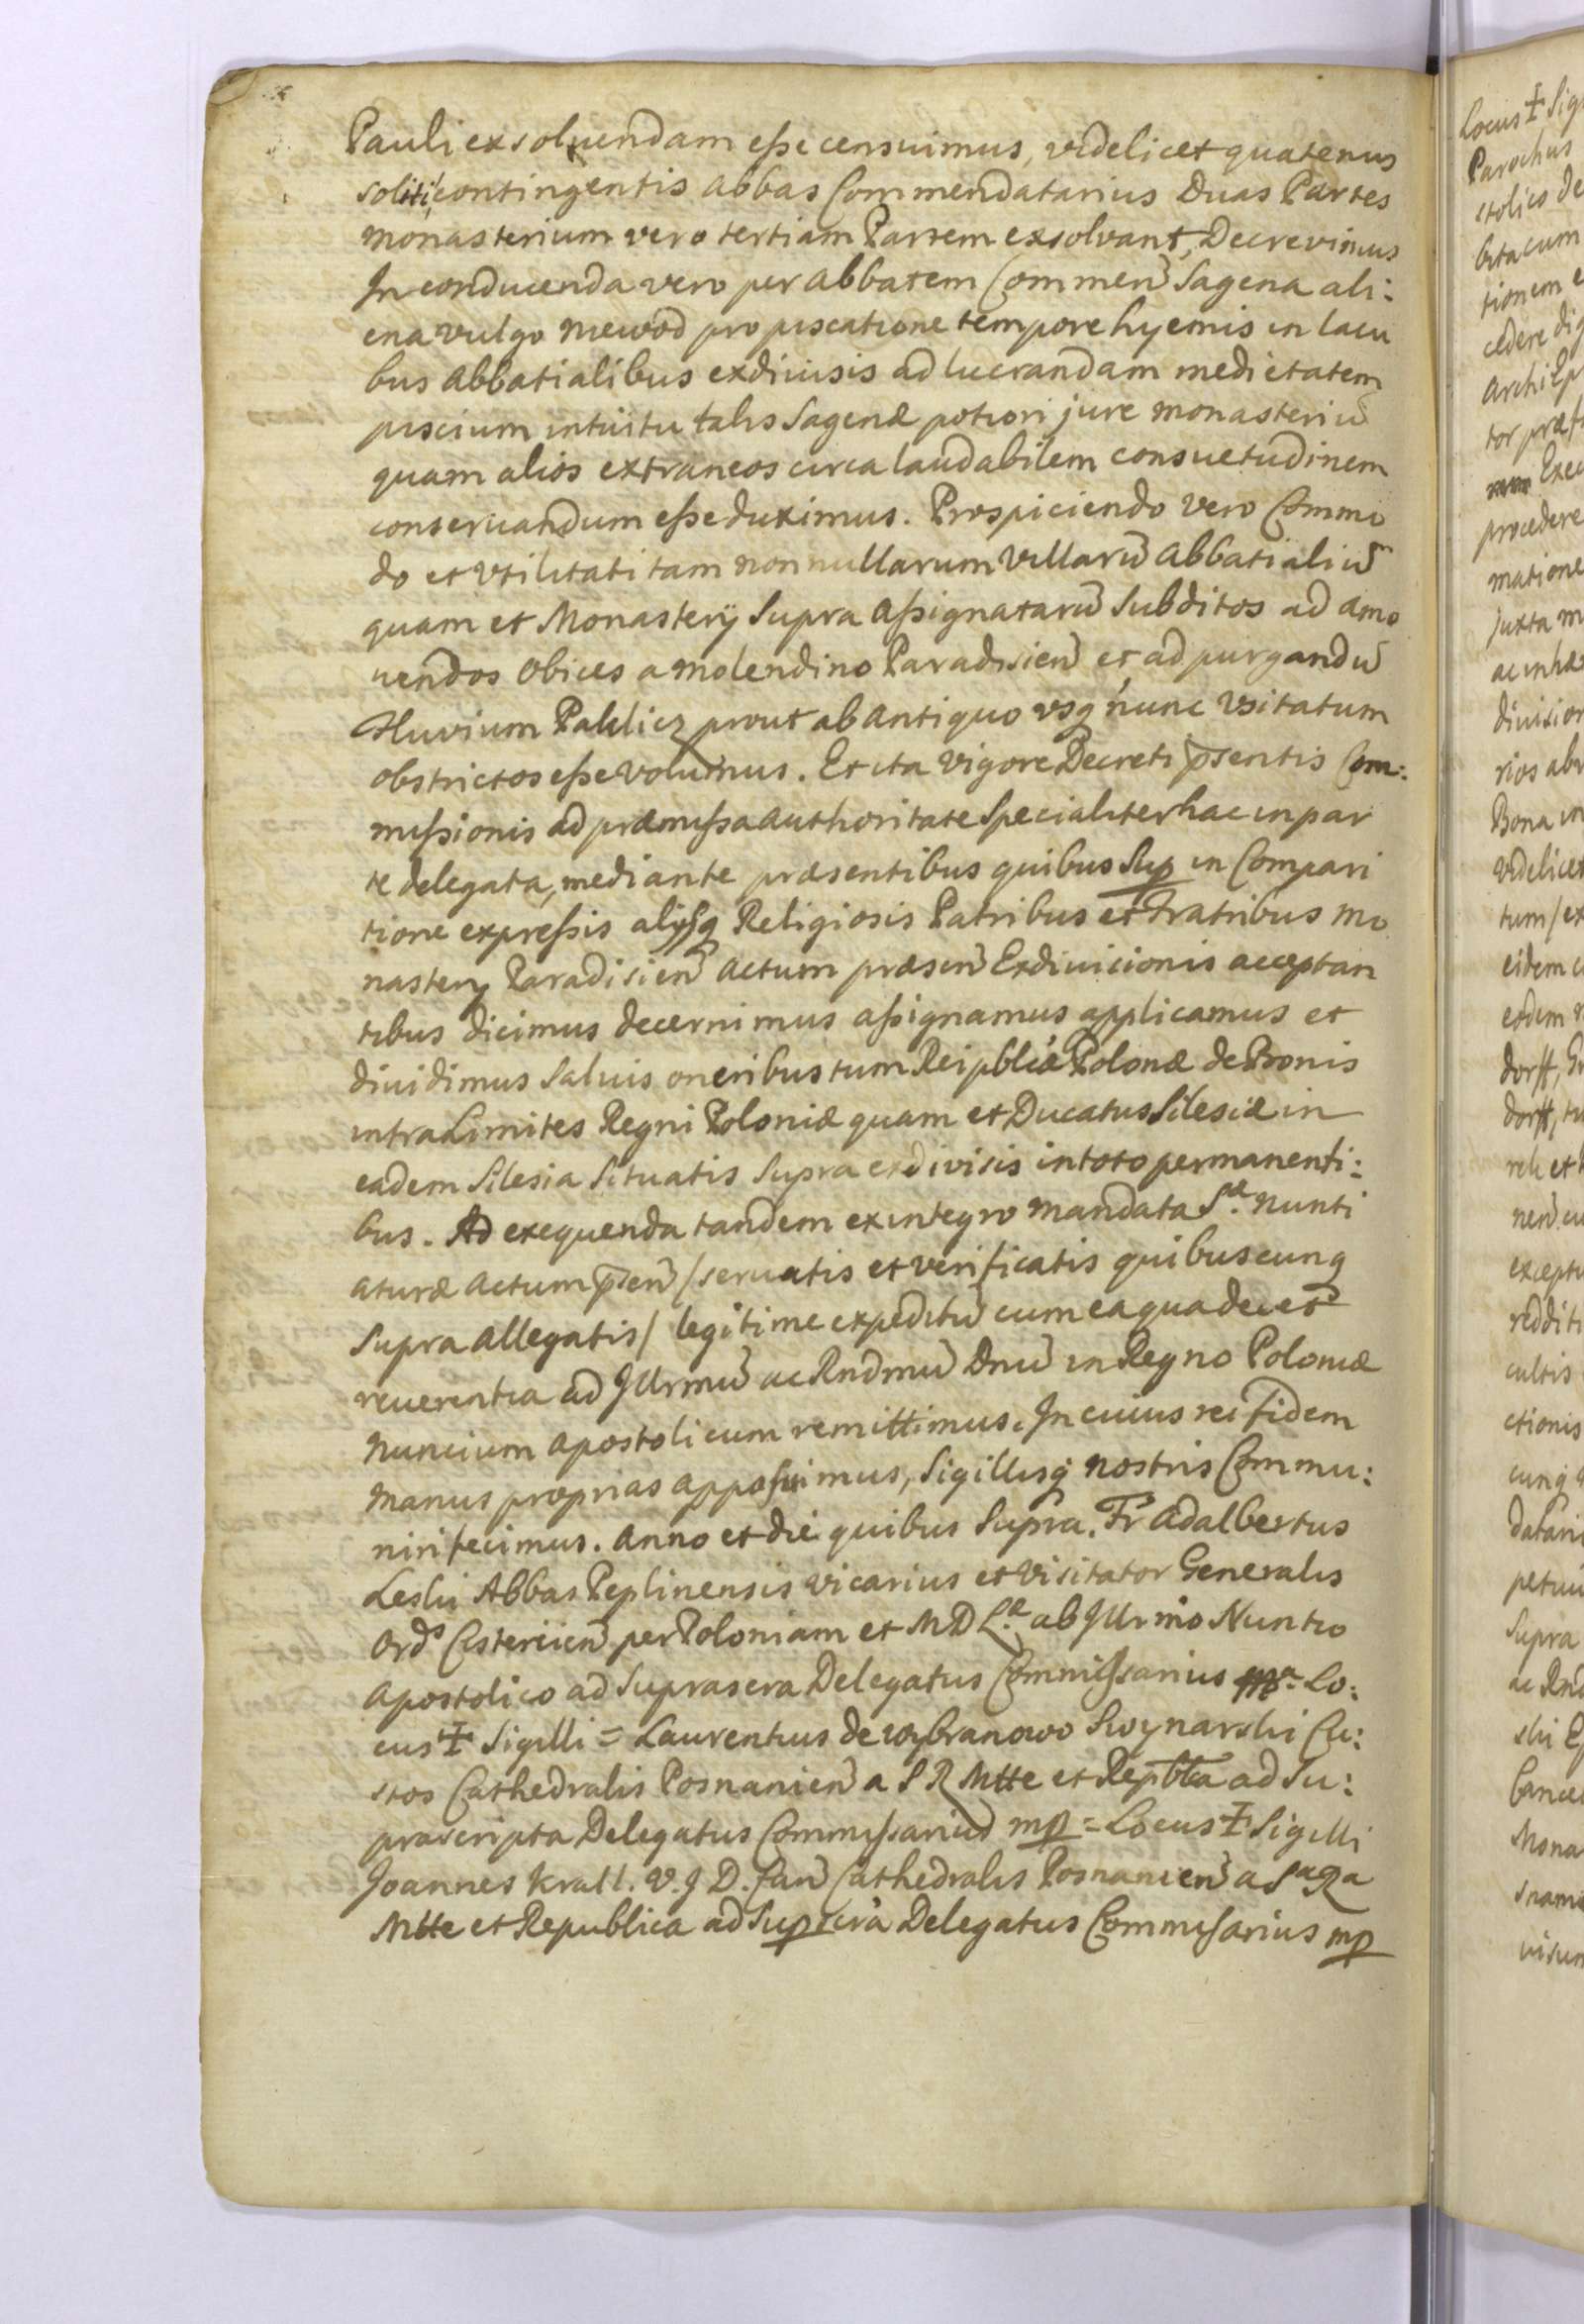 Pauli exsoluendam eße censuimus, videlicet quatenus
soliti contingentis abbas Commendatarius Duas Partes
monasterium vero tertiam Partem exsolvant, Decrevimus
In conducenda vero per abbatem Commen̄ Sagena ali:
ena vulgo niewod pro piscatione tempore hyemis in lacu
bus abbatialibus exdiuisis ad lucrandam medietatem
piscium intuitu talis Sagenæ potiori jure monasteriū
quam alios extraneos circa laudabilem consuetudinem
conseruandum eße duximus. Prospiciendo vero Commo
do et vtilitati tam nonnullarum villarū abbatialiū
quam et Monasterij Supra aßignatarū Subditos ad amo
uendos obices a molendino Paradisien̄ et ad purgandū
Fluvium Paklicz prout ab antiquo vsq nunc vsitatum
obstrictos eße volumus. Et ita vigore Decreti p̄sentis Com:
mißionis ad præmißa authoritate Specialiter hac in par
te delegata, mediante præsentibus quibus Sup in Compari
tione expreßis alijsq Religiosis Patribus et Fratribus Mo
nasterij Paradisien̄ actum præsen̄ Exdiuicionis acceptan
tibus dicimus decernimus aßignamus applicamus et
diuidimus Saluis oneribus tum Reipblicæ Polonæ de Bonis
intra Limites Regni Poloniæ quam et Ducatus Silesiæ in
eadem Silesia Situatis Supra exdivisis in toto permanenti:
bus. Ad exequenda tandem ex integro mandata Sæ. Nunti
aturæ actum p̄sen̄ /seruatis et verificatis quibuscunq
Supra allegatis/ legitime expeditū cum ea qua decet
reuerentia ad Jllrmū ac Rndmū Dnū in Regno Poloniæ
Nuncium apostolicum remittimus. In cuius rei fidem
manus proprias apposuimus, Sigillisq nostris Commu:
niri fecimus. Anno et die quibus Supra. Fr Adalbertus
Leski Abbas Peplinensis vicarius et Visitator Generalis
Ords Cistercien̄ per Poloniam et M D La. ab Jllrmo Nuntio
apostolico ad Suprascra Delegatus Commißarius mpa. Lo:
cus ☩ Sigilli = Laurentius de wybranowo Swynarski Cu:
stos Cathedralis Posnanien̄ a S R Mtte et Repblca ad Su:
prascripta Delegatus Commißarius mp = Locus ☩ Sigilli
Joannes Krall. V. J D. Can̄ Cathedralis Posnanien̄ a Sa Ra
Mtte et Republica ad Supscra Delegatus Commißarius mp